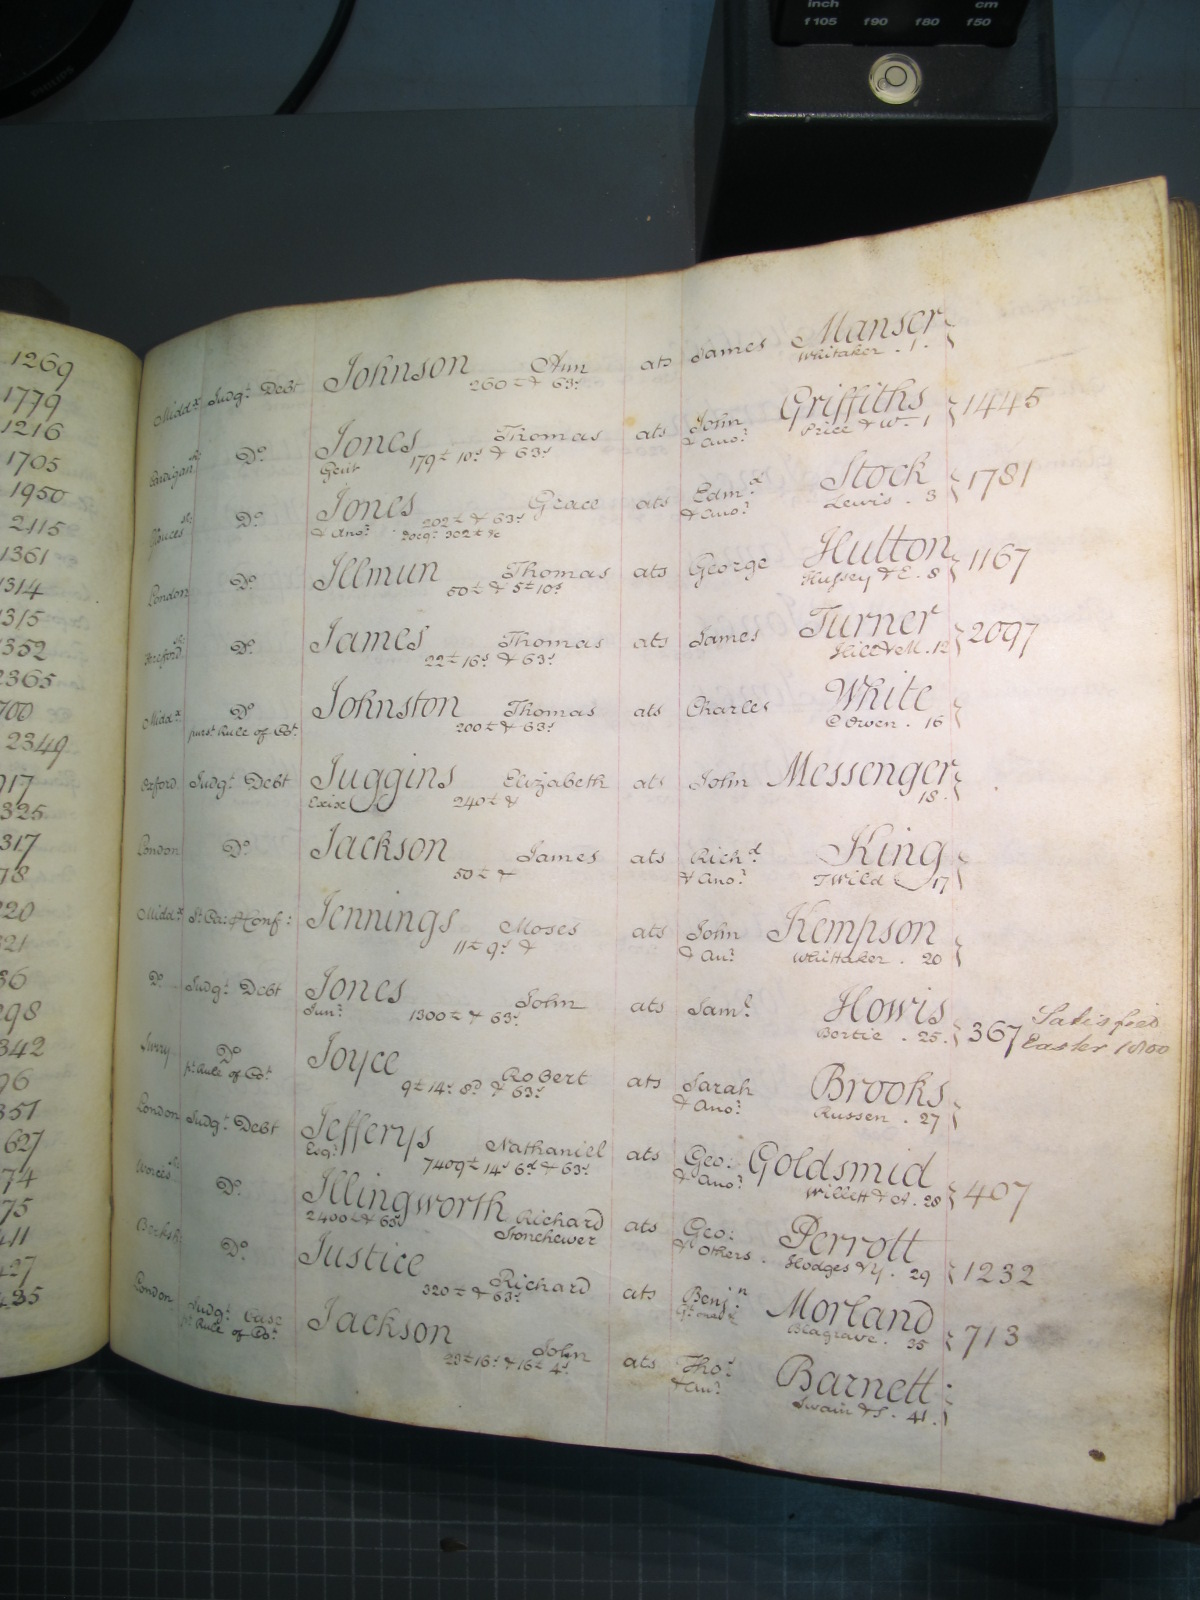 inch cm
f105 f90 f80 f50
PHILIPS
1269
1779
1216
1705
1950
2115
1361
1314
1315
1352
2365
700
2349
917
325
317
78
220
321
36
298
342
96
351
627
74
75
411
427
435
Midd.x Judg.t Debt Johnson Ann ats James Manser
260£ & 63.s Whitaker . 1 .
Cardigan D.o Jones Thomas ats John Griffiths 1445
Gent 179£ 10.s & 63.s & Ano.r Price & W. 1
D.o Jones Grace ats Edm.d Stock 1781
& Ano.r 202£ & 63.s & Ano.r Lewis . 3
302£ &c
London D.o Illmun Thomas ats George Hutton 1167
60£ & 5£ 10.s Hussey & E. 8
Hereford D.o James Thomas ats James Turner 2097
22£ 16.s & 63.s & M. 12
Midd.x D.o Johnston Thomas ats Charles White
purs.t Rule of Co.t 200£ & 63.s C Owen . 16
Oxford Judg.t Debt Juggins Elizabeth ats John Messenger
Exix 240£ & 18.
London D.o Jackson James ats Rich.d King
50£ & & Ano.r T Wild 17
Midd.x Jennings Moses ats John Kempson
11£ 9.s & & An.r Whittaker . 20
D.o Judg.t Debt Jones John ats Sam.l Howis 367 Satisfied
Jun.r 1300£ & 63.s Bertie . 25. Easter 1800
Surry D.o Joyce Robert ats Sarah Brooks
p.t Rule of Co.t 9£ 14.s 8.d & 63.s & Ano.r Russen . 27
London Judg.t Debt Jefferys Nathaniel ats Geo: Goldsmid 407
Esq.r 7409£ 14.s 6.d & 63.s & Ano.r Willett & A. 28
D.o Illingworth Richard ats Geo: Perrott 1232
2400£ & 63.s Stonehewer & Others . Hodges & Y. 29
Berks D.o Justice Richard ats Benj.n Morland 713
320£ & 63.s Blagrave . 35
London Judg.t Case Jackson John ats Tho.s Barnett
p.t Rule of Co.t 16.s & 16£ 4.s & An.r Swain & S. 41.